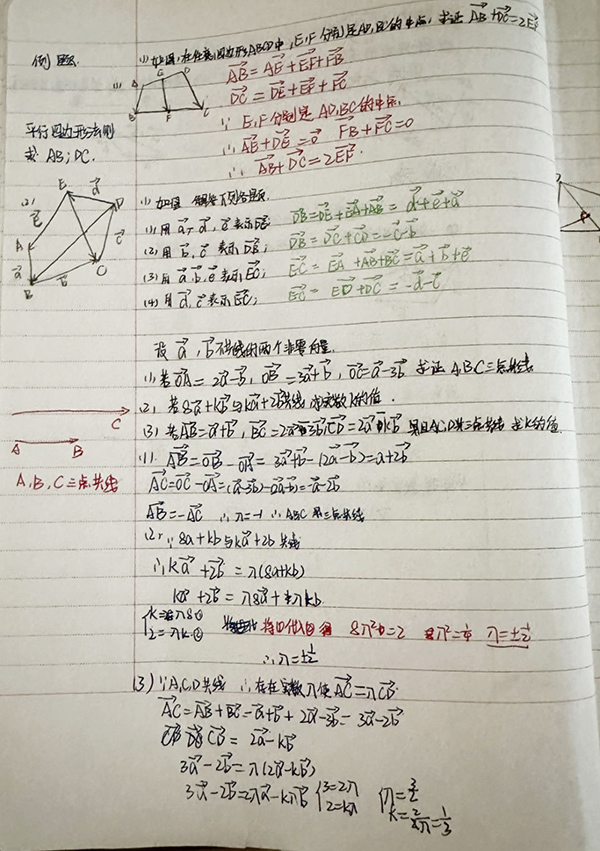 例题
(1) 如图，在任意四边形ABCD中，E,F分别是AD,BC的中点，求证 AB+DC=2EF
(1)
A E D
B F C
AB=AE+EF+FB
DC=DE+EF+FC
∵ E,F分别是AD,BC的中点
∴ AE+DE=0 FB+FC=0
∴ AB+DC=2EF
平行四边形法则
求 AB;DC.
(2)
E d D
e c
A C
a B b
(1) 如图 解答下列各题
(1) 用 a, d, e 表示DB; DB=DE+EA+AB=d+e+a
(2) 用 b, c 表示DB; DB=DC+CB=-c-b
(3) 用 a,b,e 表示EC; EC=EA+AB+BC=a+b+e
(4) 用 d,c 表示EC; EC=ED+DC=-d-c
设 a, b 不共线的两个非零向量.
(1) 若OA=2a-b, OB=3a+b, OC=a-3b 求证 A,B,C三点共线
(2) 若8a+kb与ka+2b共线 求实数k的值.
(3) 若AB=a+b, BC=2a-3b, CD=2a-kb 且A,C,D三点共线 求k的值
C
A B
A,B,C三点共线
(1) AB=OB-OA=3a+b-(2a-b)=a+2b
AC=OC-OA=(a-3b)-(2a-b)=-a-2b
AB=-AC ∴λ=-1 ∴ABC三点共线
(2) ∵8a+kb与ka+2b共线
∴ka+2b=λ(8a+kb)
ka+2b=λ8a+λkb
k=λ8①
2=λk② 将①代入②得 8λ²=2 λ²=1/4 λ=±1/2
∴λ=±1/2
(3) ∵A,C,D共线 ∴存在实数λ使AC=λCD
AC=AB+BC=a+b+2a-3b=3a-2b
CD=2a-kb
3a-2b=λ(2a-kb)
3a-2b=2λa-kλb {3=2λ {λ=3/2
2=kλ k=2/λ=1/3